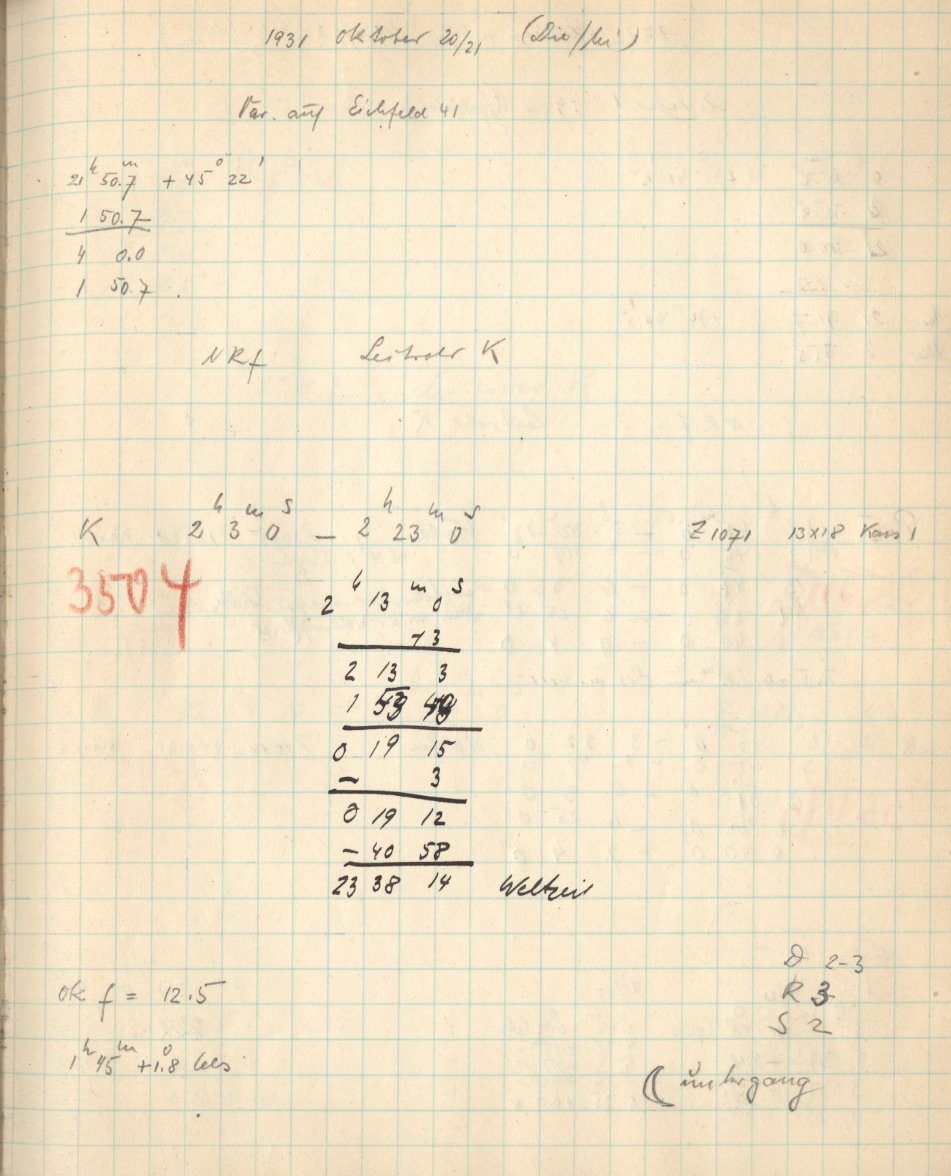 1931 Oktober 20/21 (Die/Mi)
Var. auf Eichfeld 41
21h 50.7m + 45° 22'
1 50.7
4 0.0
1 50.7
NRf Leitrohr K
K 2h 3m 0s – 2h 23m 0s Z 1071 13x18 Kass 1
3504
2h 13m 0s
+3
2 13 3
1 53 48
0 19 15
– 3
0 19 12
– 40 58
23 38 14 Weltzeit
D 2-3
ok f = 12.5 R 3
S 2
1h 45m +1.8°